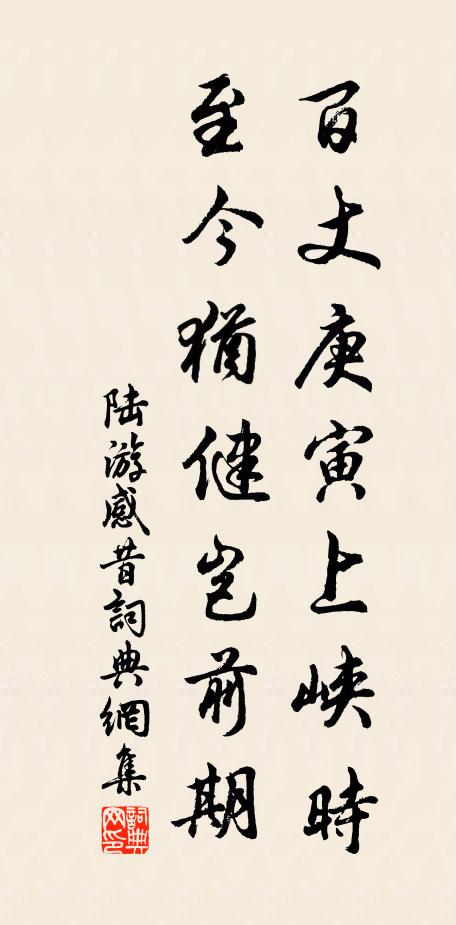 百丈庚寅上峽時
至今猶健豈前期
陆游感昔詞典網集
詞典网印